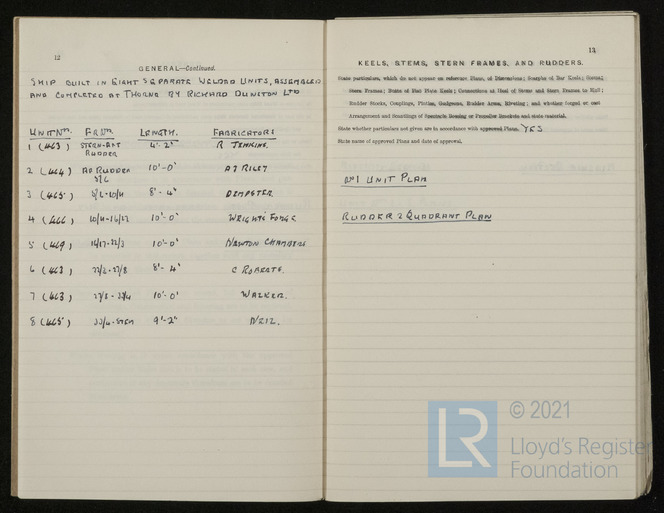 12
GENERAL—Continued.
SHIP BUILT IN EIGHT SEPARATE WELDED UNITS, ASSEMBLED
AND COMPLETED AT THORNE BY RICHARD DUNSTON LTD
UNIT NO. FROM. LENGTH. FABRICATORS
1 (463) STERN-AFT RUDDER 4'-2" R JENKINS.
2 (464) RUDDER 10'-0" A J RILEY
3 (465) 8'-4" DEMPSTER
4 (466) 10'-0" WRIGHTS FORGE
5 (469) 10'-0" NEWTON CHAMBERS
6 (463) 8'-4" C ROBERTS.
7 (463) 10'-0" WALKER.
8 (465) STEM 9'-2"
13
KEELS, STEMS, STERN FRAMES, AND RUDDERS.
State particulars, which do not appear on reference Plans, of Dimensions; Scarphs of Bar Keels; Stems;
Stern Frames; Butts of Flat Plate Keels; Connections at Head of Stems and Stern Frames to Hull;
Rudder Stocks, Couplings, Pintles, Gudgeons, Rudder Arms, Riveting; and whether forged or cast
Arrangement and Scantlings of Spectacle Bossing or Propeller Brackets and state material.
State whether particulars not given are in accordance with approved Plans. YES
State name of approved Plans and date of approval.
No 1 UNIT PLAN
RUDDER & QUADRANT PLAN
LR
© 2021
Lloyd's Register
Foundation